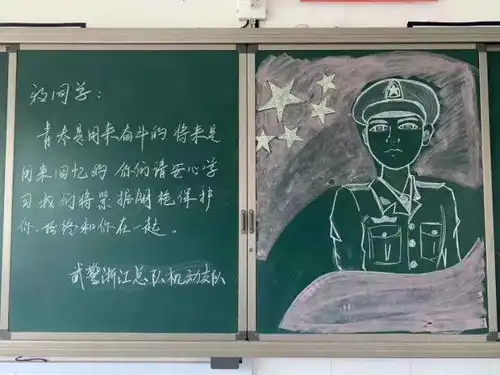 致同学：
青春是用来奋斗的 将来是
用来回忆的 你们请安心学
习 我们将紧握钢枪保护
你，始终和你在一起。
武警浙江总队机动支队